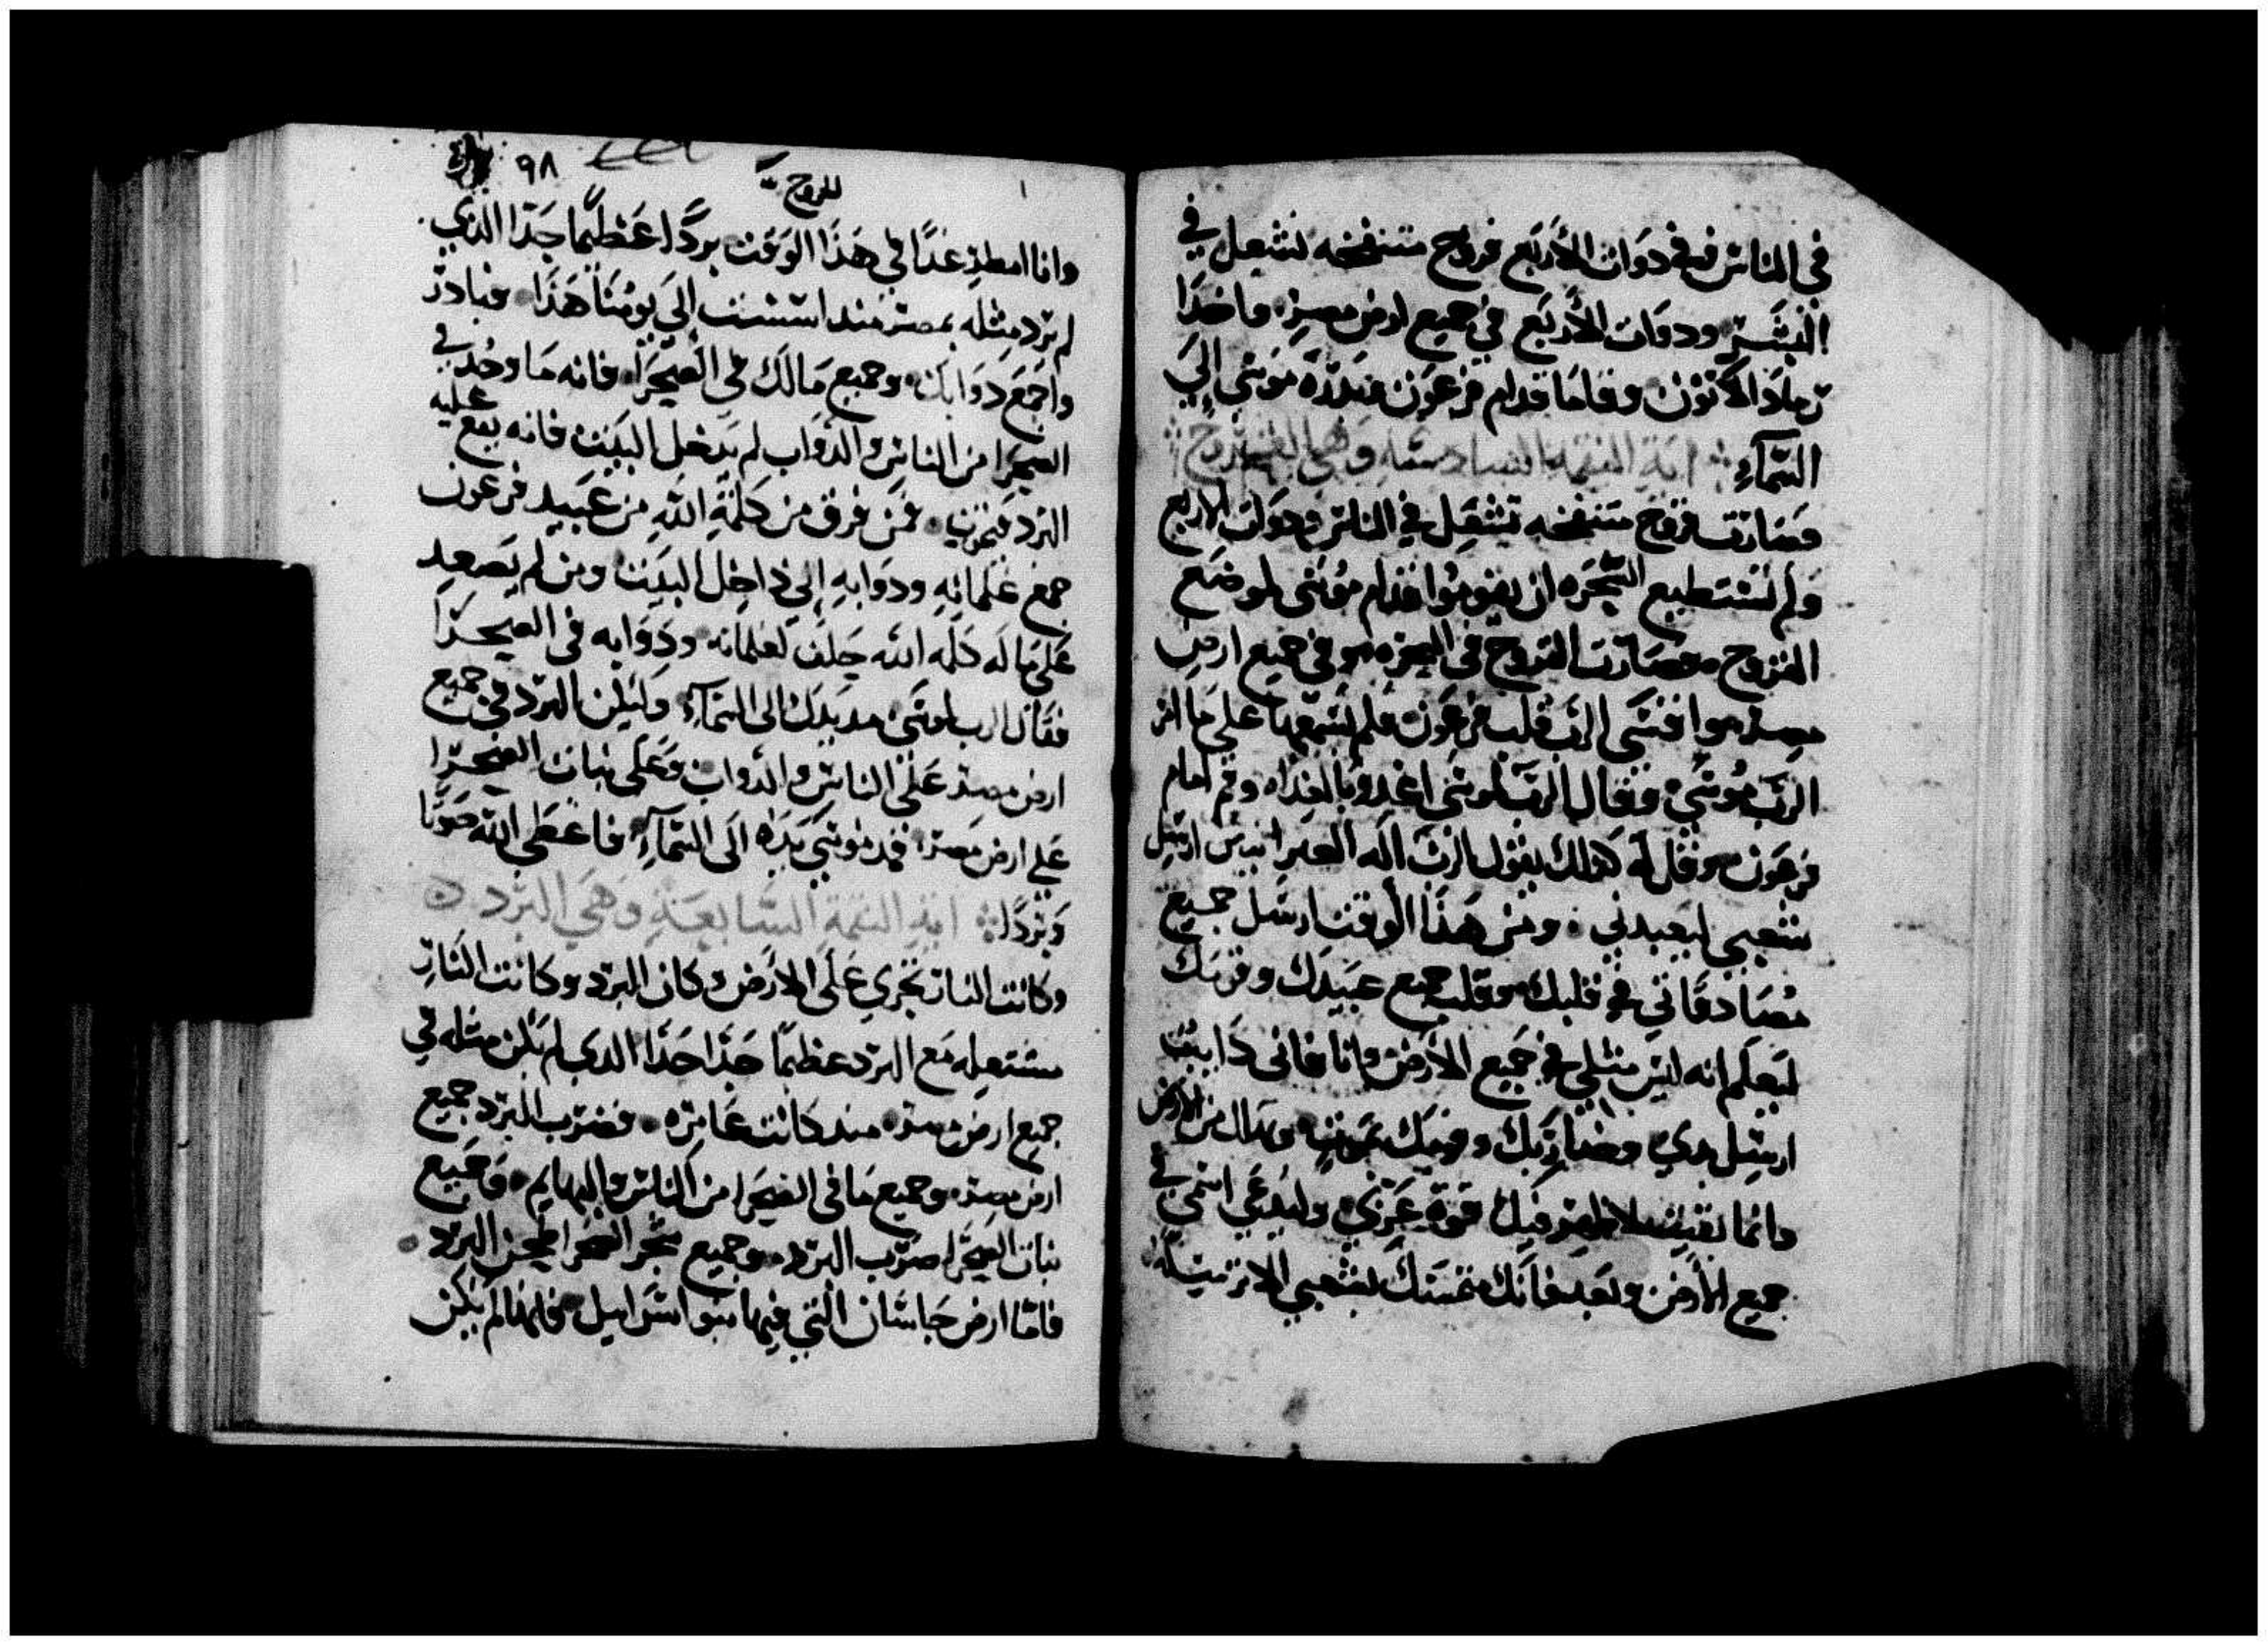 في الناس وفي دوات الأربع قروح متنفخه تشعل في
البشر ودوات الأربع في جميع ارض مصر. فاخدا
رماد الاتون وقاما قدام فرعون فبدره موسى إلي
السمآء. اية النقمه السادسه وهي القروح
فصارت قروح متنفخه تشعل في الناس ودوات الاربع
ولم تستطيع السحره ان يقوموا قدام موسى لموضع
القروح. فصارت القروح في السحره. وفي جميع ارض
مصر. فقسي الرب قلب فرعون فلم يسمعهما علي ما امر
الرب موسي. وقال الرب لموسي اغدوا بالغداه وقم امام
فرعون. وقل له كدلك يقول الرب اله العبرانيين ارسل
شعبي ليعبدني. ومن هذا الوقت ارسل جميع
مصادفاتي في قلبك وقلب جميع عبيدك وقومك
ليعلم انه ليس مثلي في جميع الارض وانا فاني دابيت
ارسل يدي وضاربك وقومك بموت. وتهلك من الارض
وانما بقيت لاظهر فيك قوة عزتي. وليدعي اسمي في
جميع الأرض وبعد فانك متمسك بشعبي الا ترسله.
الخروج
٩٨
وانا امطر غدًا في هذا الوقت بردًا عظيمًا جدا الدي
لم ترد مثله بمصر مند اسست إلي يومنا هذا. فبادر
واجمع دوابك. وجميع مالك في الصحرا. فانه ما وجد في
الصحرا من الناس والدواب لم يدخل البيت فانه يقع عليه
البرد فيموت. فمن فرق من كلمة الله من عبيد فرعون
جمع غلمانه ودوابه إلي داخل البيت ومن لم يصعد
علي باله كلمه الله خلف لغلمانه ودوابه في الصحرا
فقال الرب لموسى مد يدك الى السمآء وليكن البرد في جميع
ارض مصر على الناس والدواب وعلى نبات الصحرا
علي ارض مصر. فمد موسي يده الى السمآء. فاعطي الله صوتا
وبردًا. اية النقمة السابعة وهي البرد
وكانت النار تجري على الارض وكان البرد وكانت النار
مشتعله مع البرد عظيمًا جدا جدا الدي لم يكن مثله في
جميع ارض مصر. مند كانت عامره. فضرب البرد جميع
ارض مصر. وجميع ما في الصحرا من الناس والبهايم. وجميع
نبات الصحرا ضرب البرد. وجميع شجر الصحرا طحن البرد.
فاما ارض جاسان التي فيها بنوا اسراييل فانها لم يكن